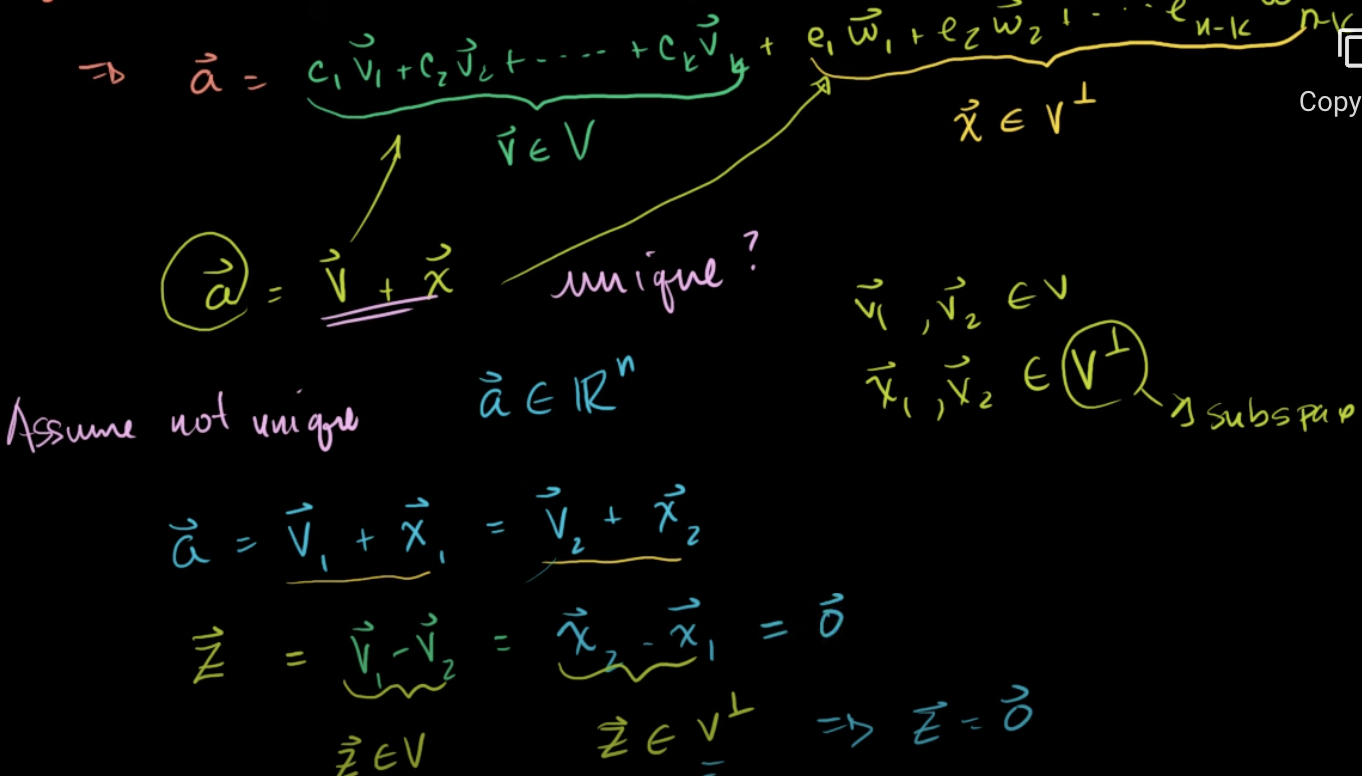 ⇒ a⃗ = c₁v⃗₁ + c₂v⃗₂ + ····· + cₖv⃗ₖ + e₁w⃗₁ + e₂w⃗₂ + ···· eₙ₋ₖw⃗ₙ₋ₖ
Copy
v⃗ ∈ V x⃗ ∈ V⊥
a⃗ = v⃗ + x⃗ unique?
v⃗₁, v⃗₂ ∈ V
x⃗₁, x⃗₂ ∈ V⊥ → subspace
Assume not unique a⃗ ∈ ℝⁿ
a⃗ = v⃗₁ + x⃗₁ = v⃗₂ + x⃗₂
z⃗ = v⃗₁ - v⃗₂ = x⃗₂ - x⃗₁ = 0⃗
z⃗ ∈ V z⃗ ∈ V⊥ ⇒ z⃗ = 0⃗